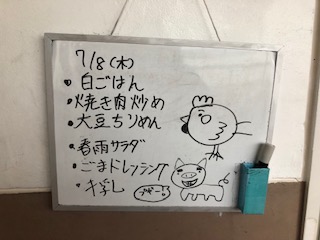 7/8(木)
・白ごはん
・焼き肉炒め
・大豆ちりめん
・春雨サラダ
・ごまドレッシング
・すまし